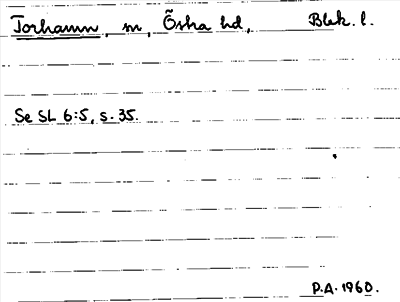 Torhamn, sn, Östra hd, Blek. l.
Se SL 6:5, s. 35.
P.A. 1960.